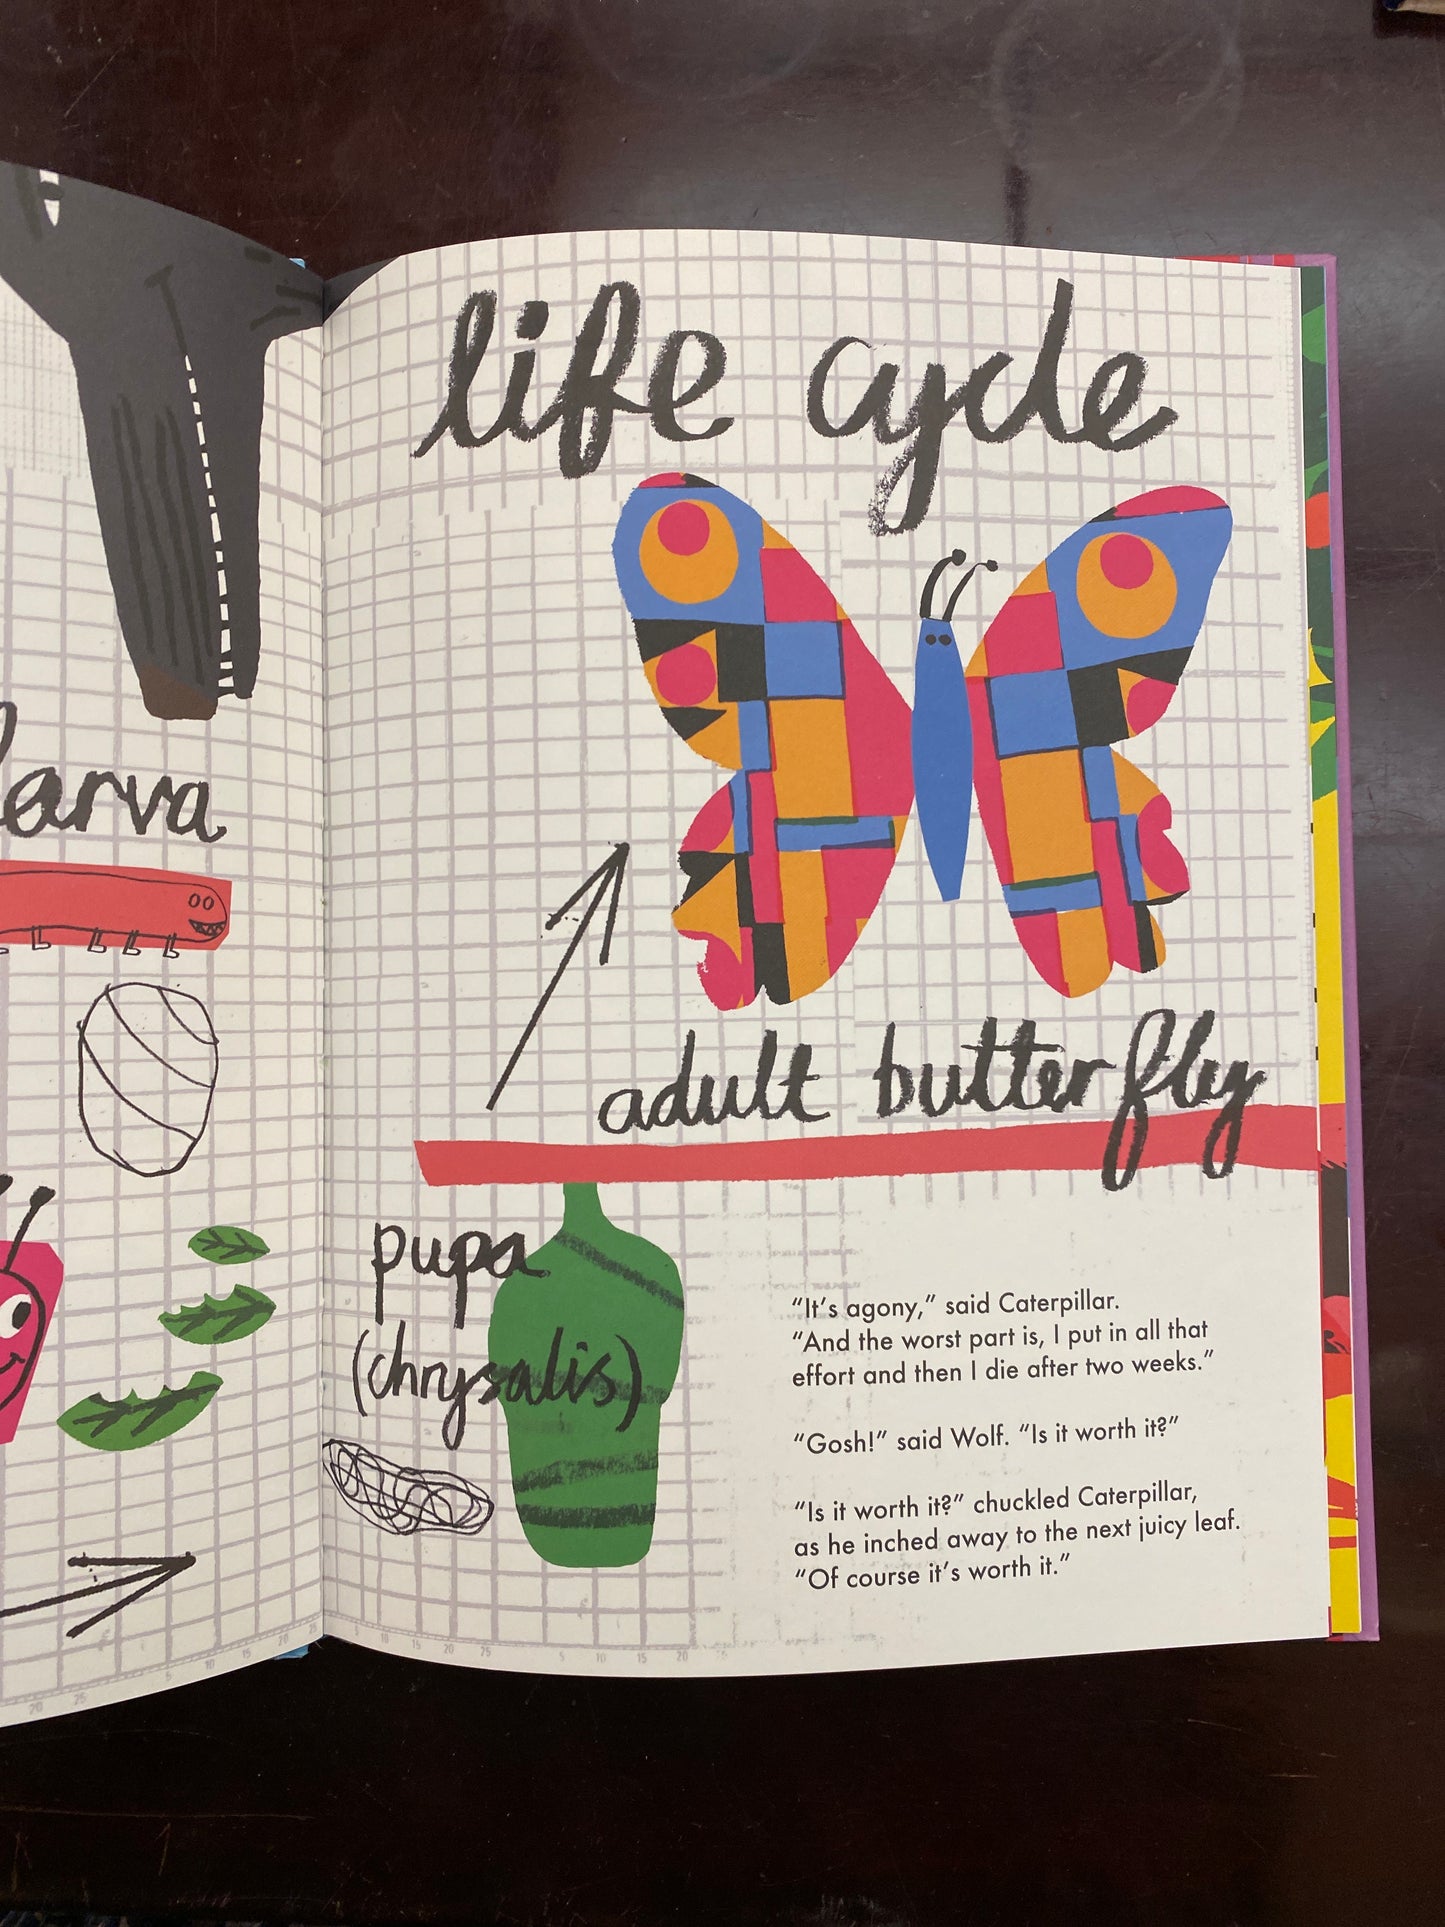 life cycle
larva
adult butterfly
pupa
(chrysalis)
“It’s agony,” said Caterpillar.
“And the worst part is, I put in all that
effort and then I die after two weeks.”
“Gosh!” said Wolf. “Is it worth it?”
“Is it worth it?” chuckled Caterpillar,
as he inched away to the next juicy leaf.
“Of course it’s worth it.”
20 25 5 10 15 20 25
5 10 15 20 25 5 10 15 20